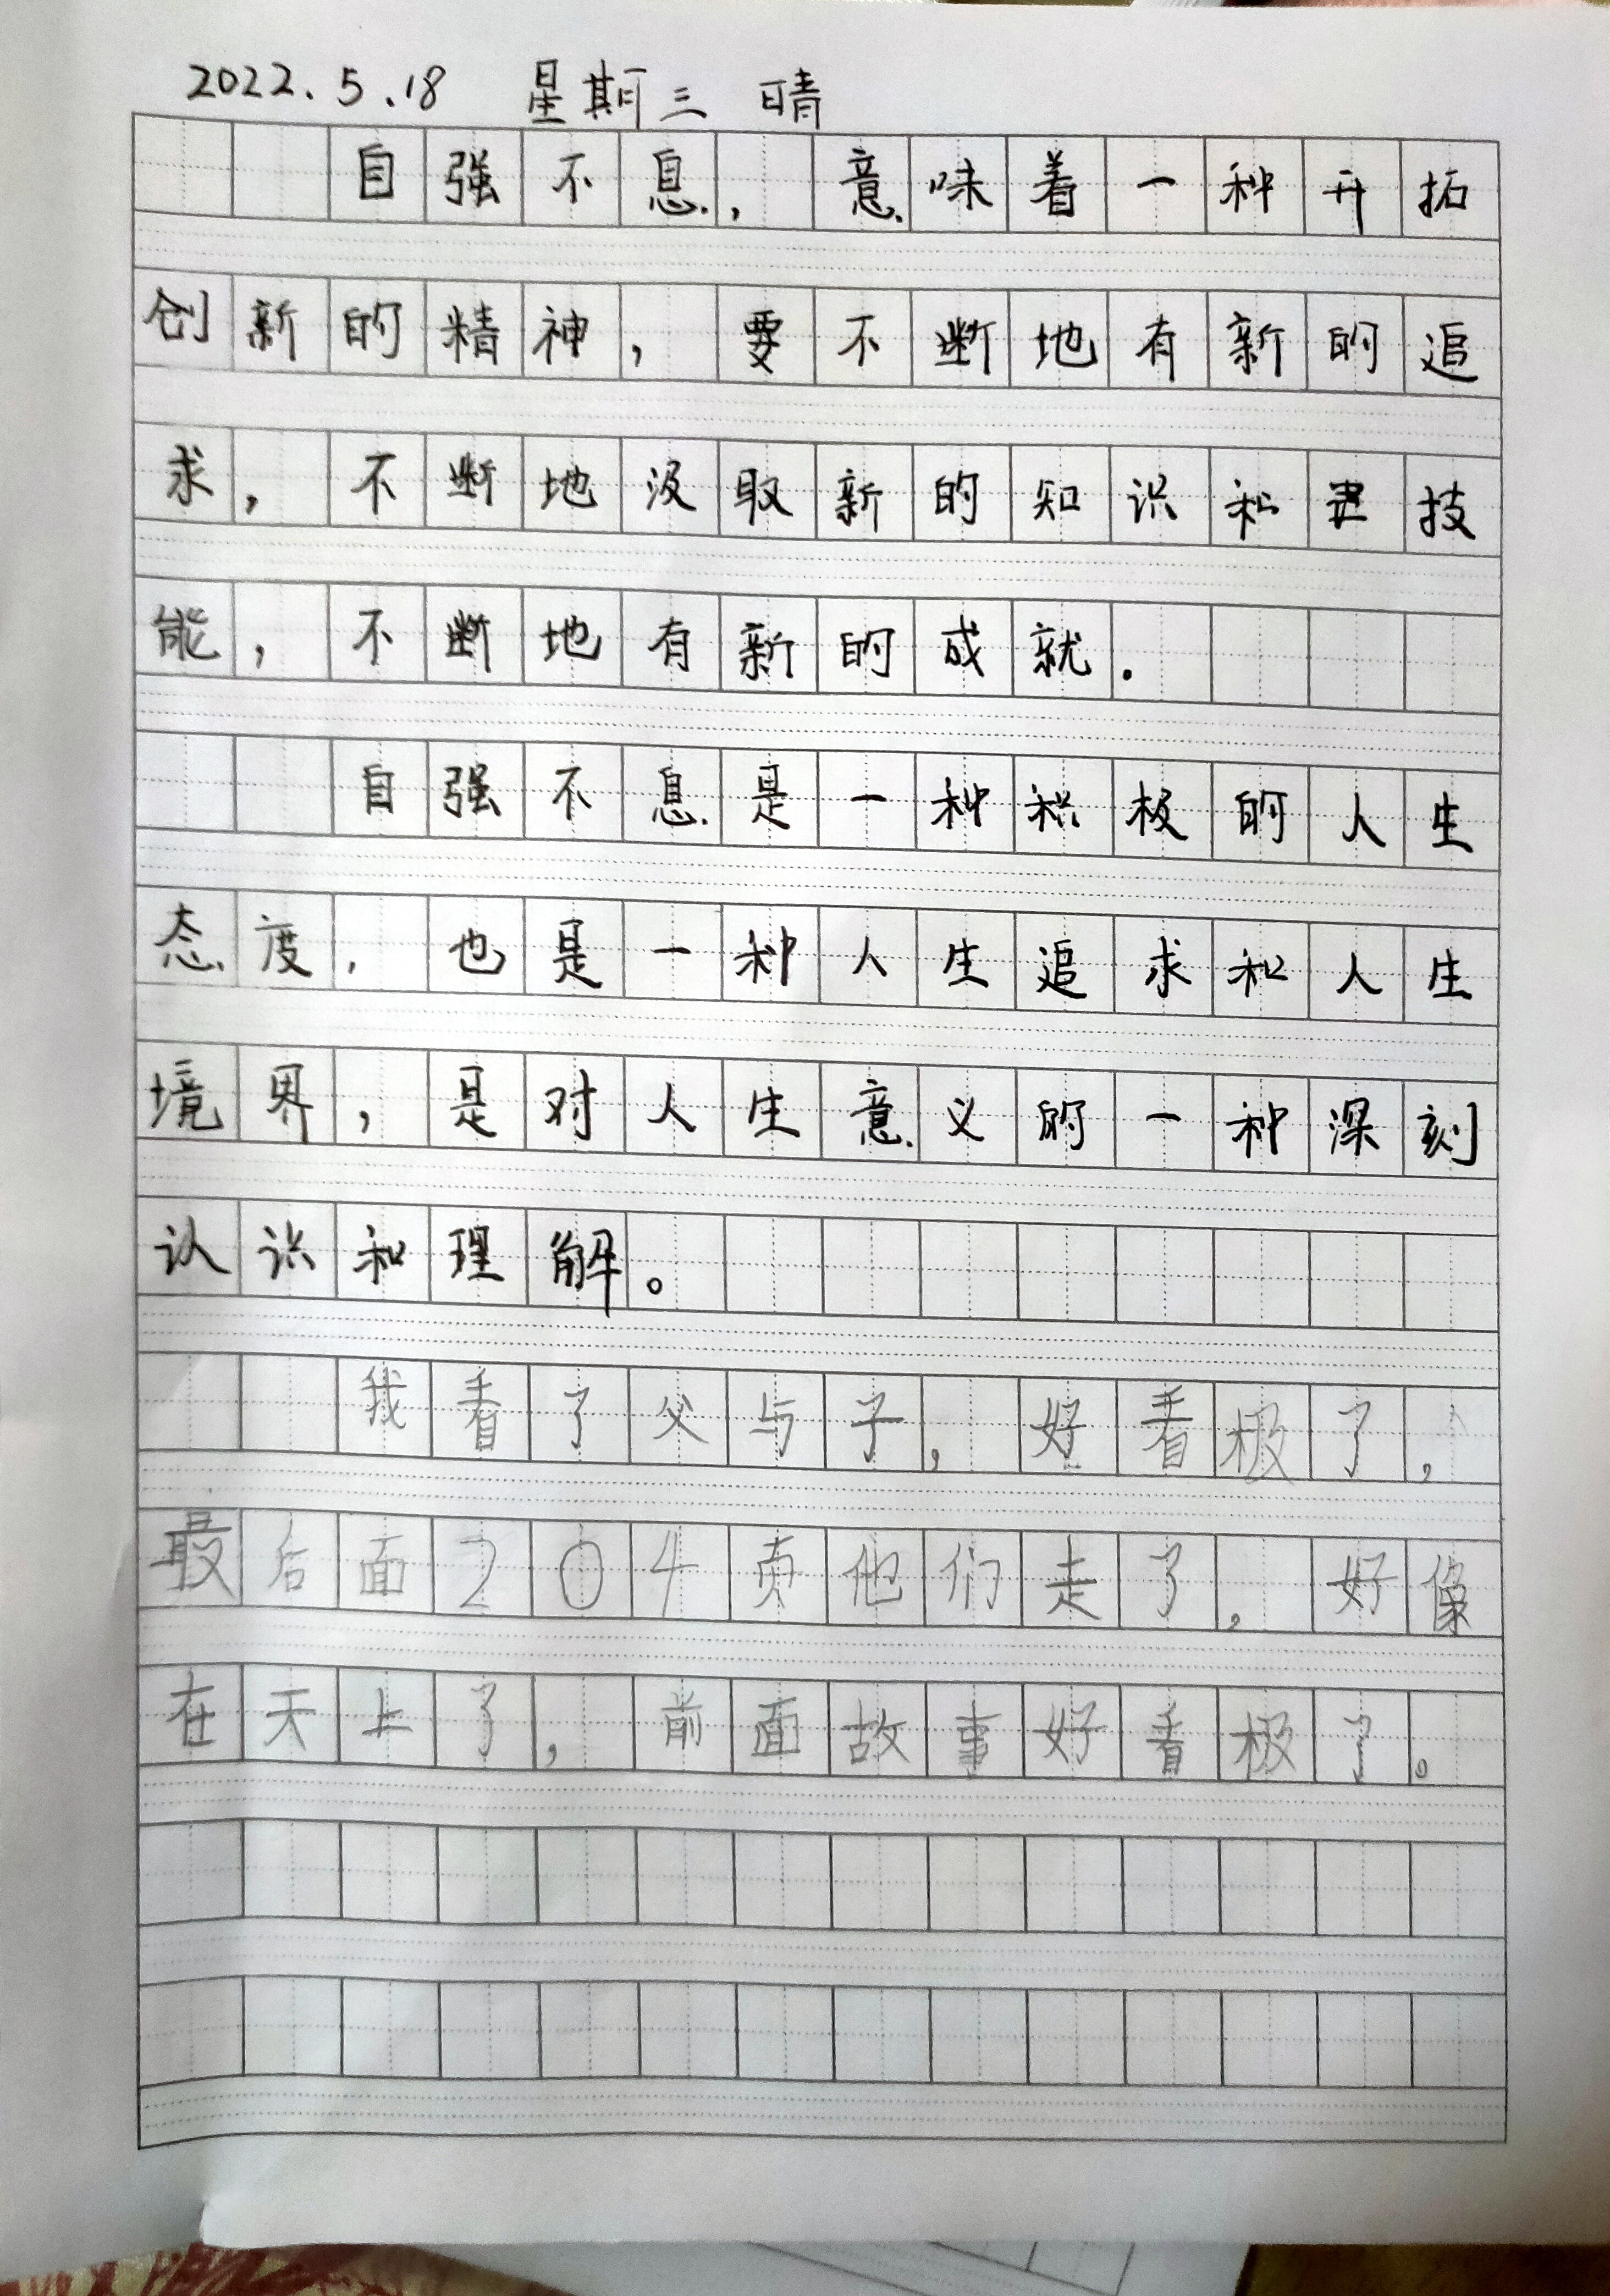 2022.5.18 星期三 晴
自强不息,意味着一种开拓
创新的精神,要不断地有新的追
求,不断地汲取新的知识和技
能,不断地有新的成就.
自强不息是一种积极的人生
态度,也是一种人生追求和人生
境界,是对人生意义的一种深刻
认识和理解。
我看了父与子,好看极了,
最后面204页他们走了,好像
在天上了,前面故事好看极了。